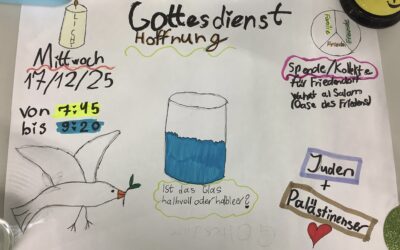 LICHT
Gottesdienst
Hoffnung
Mittwoch
17/12/25
von 7:45
bis 9:20
Familie
Freunde
Spende/Kollekte
für Friedendorf
wahat al Salam
(Oase des Friedens)
Ist das Glas
halbvoll oder halbleer?
Juden
+
Palästinenser